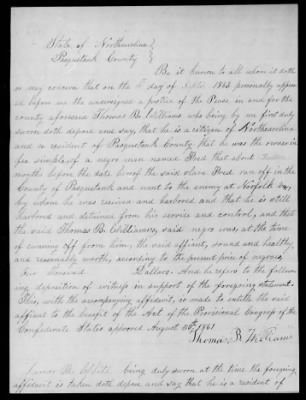 State of Northcarolina }
Pasquotank County }
Be it known to all whom it doth
or may concern that on the day of Septr 1863 personally appear
ed before me the undersigned a justice of the Peace in and for the
county aforesaid Thomas B. Williams who being by me first duly
sworn doth depose and say, that he is a citizen of Northcarolina
and a resident of Pasquotank County that he was the owner in
fee simple of a negro man named Fred that about
months before the date hereof the said slave Fred ran off in the
County of Pasquotank and went to the enemy at Norfolk Va,
by whom he was received and harbored and that he is still
harbored and detained from his service and control, and that
the said Thomas B. Williams, said negro was, at the time
of running off from him, the said affiant, sound and healthy,
and reasonably worth, according to the present price of negroes,
Dollars. And he refers to the follow
ing deposition of witness in support of the foregoing statement.
This, with the accompanying affidavit, is made to entitle the said
affiant to the benefit of the Act of the Provisional Congress of the
Confederate States approved August 30th 1861
Thomas B Williams
being duly sworn at the time the foregoing
affidavit is taken doth depose and say that he is a resident of